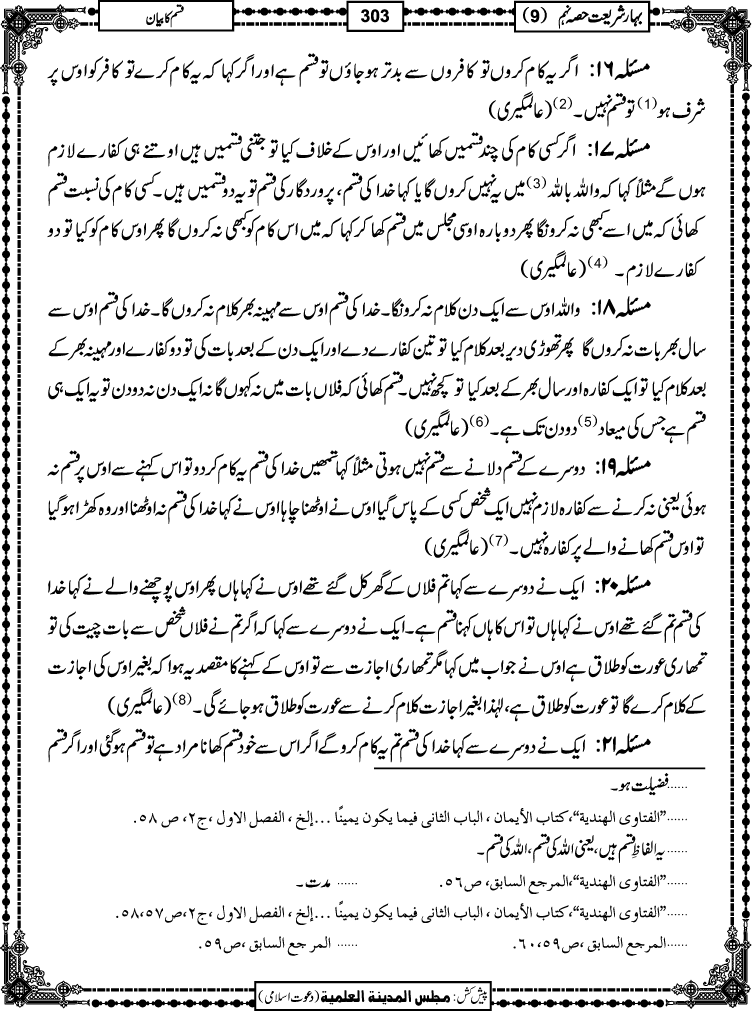 بہار شریعت حصہ نہم (9)
303
قسم کا بیان
مسئلہ ۱۶: اگر یہ کام کروں تو کافروں سے بدتر ہو جاؤں تو قسم ہے اور اگر کہا کہ یہ کام کرے تو کافر کو اوس پر
شرف ہو (1) تو قسم نہیں۔ (2) (عالمگیری)
مسئلہ ۱۷: اگر کسی کام کی چند قسمیں کھائیں اور اوس کے خلاف کیا تو جتنی قسمیں ہیں اوتنے ہی کفارے لازم
ہوں گے مثلاً کہا کہ واللہ باللہ (3) میں یہ نہیں کروں گا یا کہا خدا کی قسم، پروردگار کی قسم تو یہ دو قسمیں ہیں۔ کسی کام کی نسبت قسم
کھائی کہ میں اسے کبھی نہ کرونگا پھر دوبارہ اوسی مجلس میں قسم کھا کر کہا کہ میں اس کام کو کبھی نہ کروں گا پھر اوس کام کو کیا تو دو
کفارے لازم۔ (4) (عالمگیری)
مسئلہ ۱۸: واللہ اوس سے ایک دن کلام نہ کرونگا۔ خدا کی قسم اوس سے مہینہ بھر کلام نہ کروں گا۔ خدا کی قسم اوس سے
سال بھر بات نہ کروں گا پھر تھوڑی دیر بعد کلام کیا تو تین کفارے دے اور ایک دن کے بعد بات کی تو دو کفارے اور مہینہ بھر کے
بعد کلام کیا تو ایک کفارہ اور سال بھر کے بعد کیا تو کچھ نہیں۔ قسم کھائی کہ فلاں بات میں نہ کہوں گا نہ ایک دن نہ دو دن تو یہ ایک ہی
قسم ہے جس کی میعاد (5) دو دن تک ہے۔ (6) (عالمگیری)
مسئلہ ۱۹: دوسرے کے قسم دلانے سے قسم نہیں ہوتی مثلاً کہا تمھیں خدا کی قسم یہ کام کر دو تو اس کہنے سے اوس پر قسم نہ
ہوئی یعنی نہ کرنے سے کفارہ لازم نہیں ایک شخص کسی کے پاس گیا اوس نے اوٹھنا چاہا اوس نے کہا خدا کی قسم نہ اوٹھنا اور وہ کھڑا ہو گیا
تو اوس قسم کھانے والے پر کفارہ نہیں۔ (7) (عالمگیری)
مسئلہ ۲۰: ایک نے دوسرے سے کہا تم فلاں کے گھر کل گئے تھے اوس نے کہا ہاں پھر اوس پوچھنے والے نے کہا خدا
کی قسم تم گئے تھے اوس نے کہا ہاں تو اس کا ہاں کہنا قسم ہے۔ ایک نے دوسرے سے کہا کہ اگر تم نے فلاں شخص سے بات چیت کی تو
تمھاری عورت کو طلاق ہے اوس نے جواب میں کہا مگر تمھاری اجازت سے تو اوس کے کہنے کا مقصد یہ ہوا کہ بغیر اوس کی اجازت
کے کلام کرے گا تو عورت کو طلاق ہے، لہٰذا بغیر اجازت کلام کرنے سے عورت کو طلاق ہو جائے گی۔ (8) (عالمگیری)
مسئلہ ۲۱: ایک نے دوسرے سے کہا خدا کی قسم تم یہ کام کرو گے اگر اس سے خود قسم کھانا مراد ہے تو قسم ہو گئی اور اگر قسم
......فضیلت ہو۔
......”الفتاوی الهندیة“، کتاب الأیمان ، الباب الثانی فیما یکون یمینًا ...إلخ ، الفصل الاول ،ج۲، ص ۵۸.
......یہ الفاظِ قسم ہیں، یعنی اللہ کی قسم، اللہ کی قسم۔
......”الفتاوی الهندیة“،المرجع السابق، ص۵۶. ......مدت۔
......”الفتاوی الهندیة“، کتاب الأیمان ، الباب الثانی فیما یکون یمینًا ...إلخ ، الفصل الاول ،ج۲،ص۵۷،۵۸.
......المرجع السابق ،ص۵۹،۶۰. ......المرجع السابق ،ص۵۹.
پیش کش: مجلس المدینة العلمیة (دعوت اسلامی)